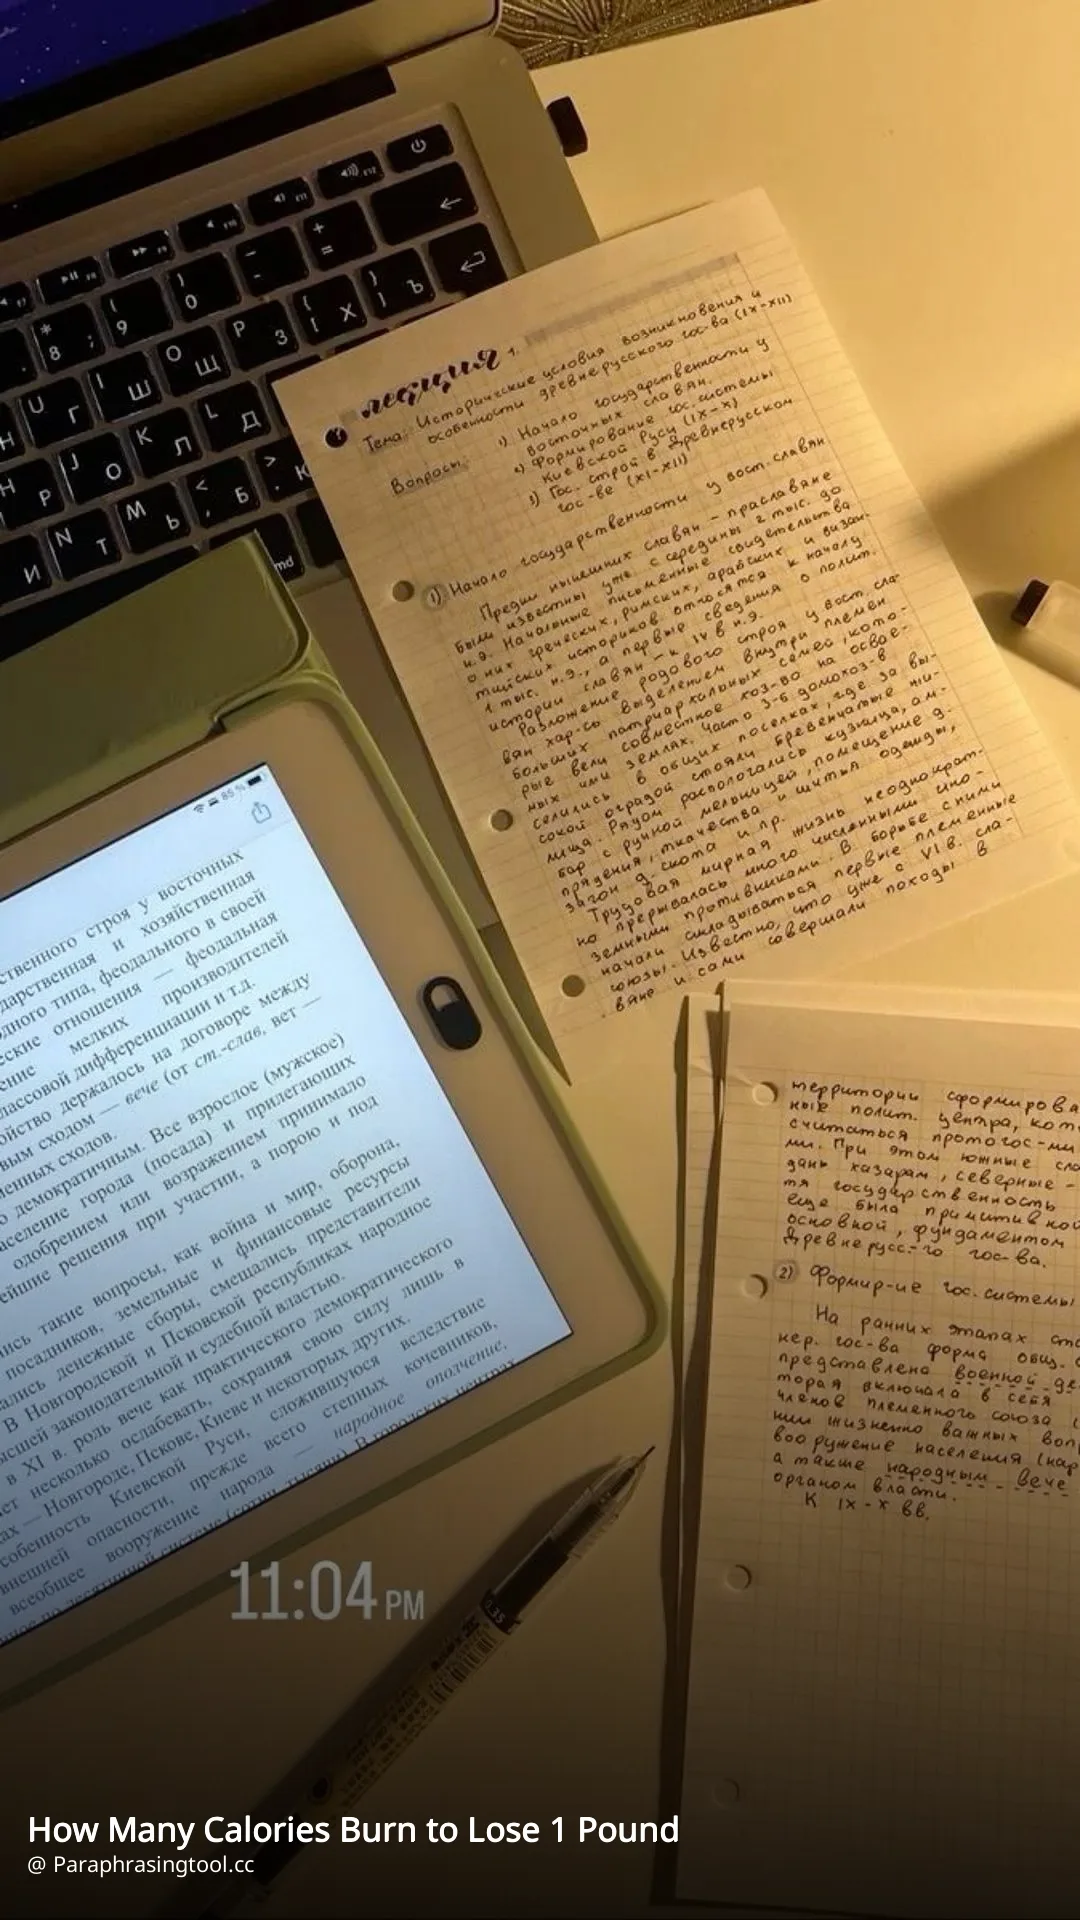 лекция 1.
Тема: Исторические условия возникновения и
особенности древнерусского гос-ва (IX-XII)
Вопросы:
1) Начало государственности у
восточных славян.
2) Формирование гос. системы
Киевской Руси (IX-X)
3) Гос. строй в Древнерусском
гос-ве (XI-XII)
1) Начало государственности у вост. славян
Предки нынешних славян - праславяне
были известны уже с середины 2 тыс. до
н.э. Начальные письменные свидетельства
о них греческих, римских, арабских и визан-
тийских историков относятся к началу
1 тыс. н.э., а первые сведения о полит.
истории славян - к IV в н.э.
Разложение родового строя у вост. сла-
вян хар-сь выделением внутри племен
больших патриархальных семей, кото-
рые вели совместное хоз-во на освое-
ных ими землях. Часто 3-6 домохоз-в
селились в общих поселках, где за вы-
сокой оградой стояли бревенчатые жи-
лища. Рядом располагались кузница, ам-
бар с ручной мельницей, помещение д.
прядения, ткачества и шитья одежды,
загон д. скота и пр.
Трудовая мирная жизнь неоднократ-
но прерывалась многочисленными ино-
земными противниками. В борьбе с ними
начали складываться первые племенные
союзы. Известно, что уже с VI в. сла-
вяне и сами совершали походы в
территории сформирова
ные полит. центра, кот
считаться протогос-ми
ми. При этом южные сла
дань хазарам, северные -
тя государственность
еще была примитивной
основной, фундаментом
Древнерусс-го гос-ва.
2) Формир-ие гос. системы
На ранних этапах ста
нер. гос-ва форма общ.
представлена военной де
торая включала в себя
членов племенного союза
нии жизненно важных вопр
вооружение населения (нар
а также народным вече
органом власти.
К IX-X вв.
85 %
ственного строя у восточных
дарственная и хозяйственная
дного типа, феодального в своей
еские отношения — феодальная
ение мелких производителей
лассовой дифференциации и т.д.
ойство держалось на договоре между
вым сходом — вече (от ст.-слав. вет —
менных сходов.
о демократичным. Все взрослое (мужское)
аселение города (посада) и прилегающих
одобрением или возражением принимало
ейшие решения при участии, а порою и под
ись такие вопросы, как война и мир, оборона,
посадников, земельные и финансовые ресурсы
ались денежные сборы, смещались представители
В Новгородской и Псковской республиках народное
ысшей законодательной и судебной властью.
в XI в. роль вече как практического демократического
ает несколько ослабевать, сохраняя свою силу лишь в
ах — Новгороде, Пскове, Киеве и некоторых других.
собенность Киевской Руси, сложившуюся вследствие
внешней опасности, прежде всего степных кочевников,
всеобщее вооружение народа — народное ополчение,
11:04 PM
0.35
How Many Calories Burn to Lose 1 Pound
@ Paraphrasingtool.cc